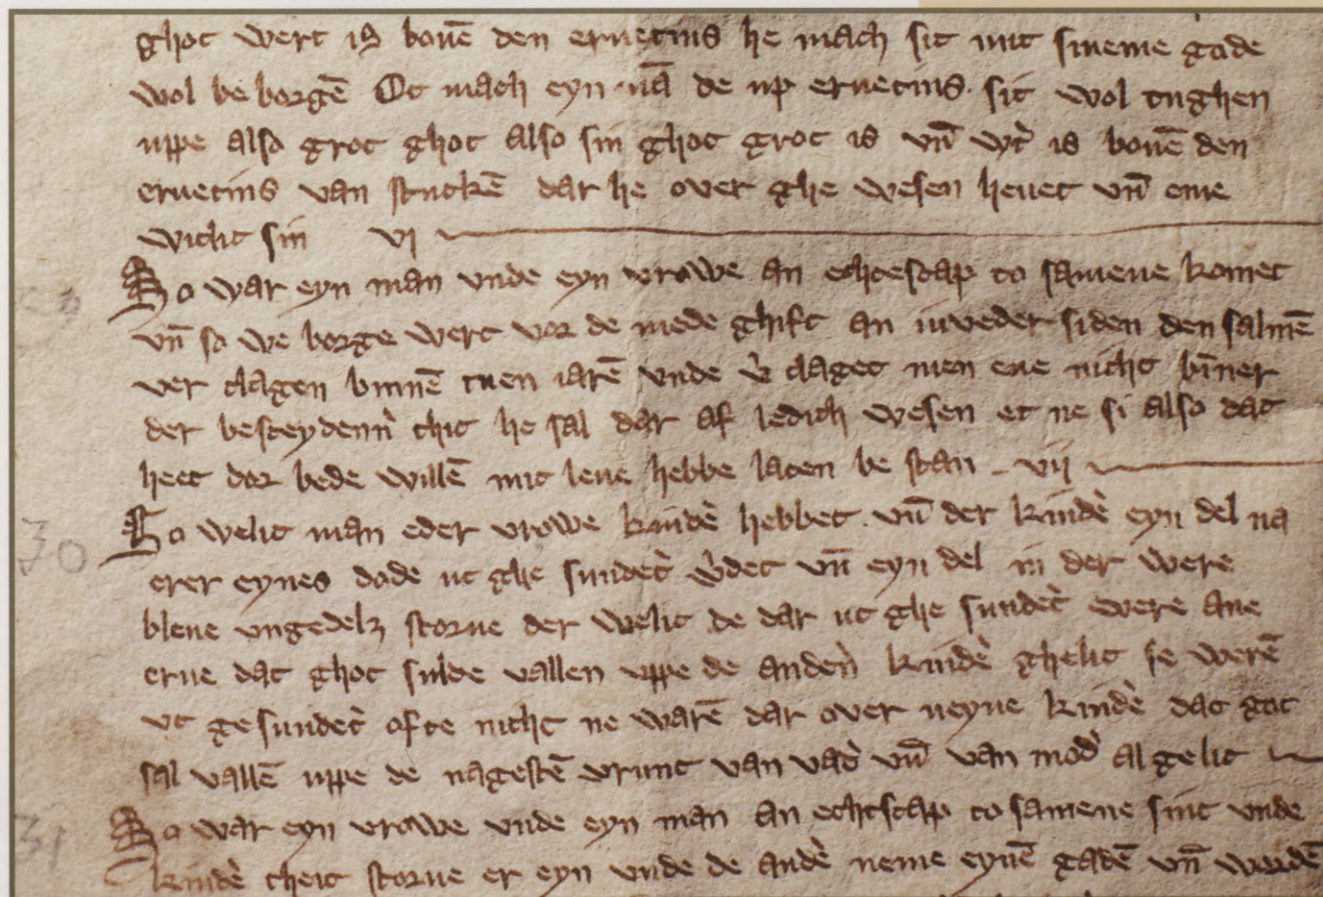 ghot wert is bouē den eruetins he mach sic mit sineme gode
wol be borgē Oc mach eyn mā de up eruetins sic wol tughen
uppe also grot ghot also sin ghot grot is vn̄ wt̉ is bouē den
eruetins van stuckē dar he over ghe wesen heuet vn̄ eme
wichlic sin vj
So war eyn man vnde eyn vrowe an echtescap to samene komet
vn̄ so we borge wert vor de mede ghift an iuweder siden den salmē
ver clagen binnē tuen iarē vnde v̉ claget men ene nicht biñer
der besceydenn̉ thit he sal dar af ledich wesen et ne si also dat
heet dor bede willē mit leue hebbe laten be stan vij
So welic man eder vrowe kindē̉ hebbet vn̄ der kindē̉ eyn del na
erer eynes dode ut ghe sundet̉ w̉det vn̄ eyn del in der were
bleue vngedelꝫ storue der welic de dar ut ghe sundet̉ were ane
erue dat ghot sulde vallen uppe de anden̉ kindē̉ ghelic se werē
vt ge sundet̉ ofte nicht ne warē dar over neyne kindē̉ dat got
sal vallē uppe de nagestē vrunt van vad̉ vn̄ van mod̉ al gelic
So war eyn vrowe vnde eyn man an echtscap to samene sint vnde
kindē̉ theit storue er eyn vnde de andē̉ neme eynē gadē vn̄ wordē
30
31